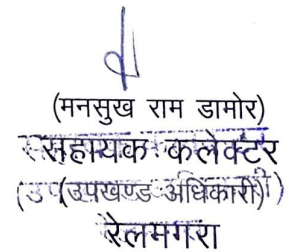 (मनसुख राम डामोर)
सहायक कलेक्टर
(उपखण्ड अधिकारी)
रेलमगरा